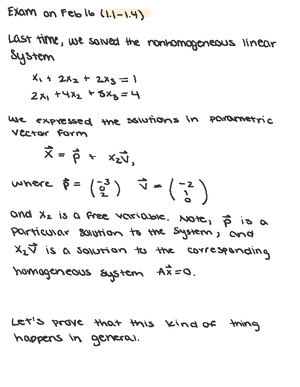 Exam on Feb 16 (1.1-1.4)
Last time, we solved the nonhomogeneous linear
System
x₁ + 2x₂ + 2x₃ = 1
2x₁ + 4x₂ + 5x₃ = 4
we expressed the solutions in parametric
vector form
x⃗ = p⃗ + x₂v⃗,
where p⃗ = (-3 0 2) v⃗ = (-2 1 0)
and x₂ is a free variable. Note, p⃗ is a
particular solution to the system, and
x₂v⃗ is a solution to the corresponding
homogeneous system Ax⃗=0.
Let's prove that this kind of thing
happens in general.